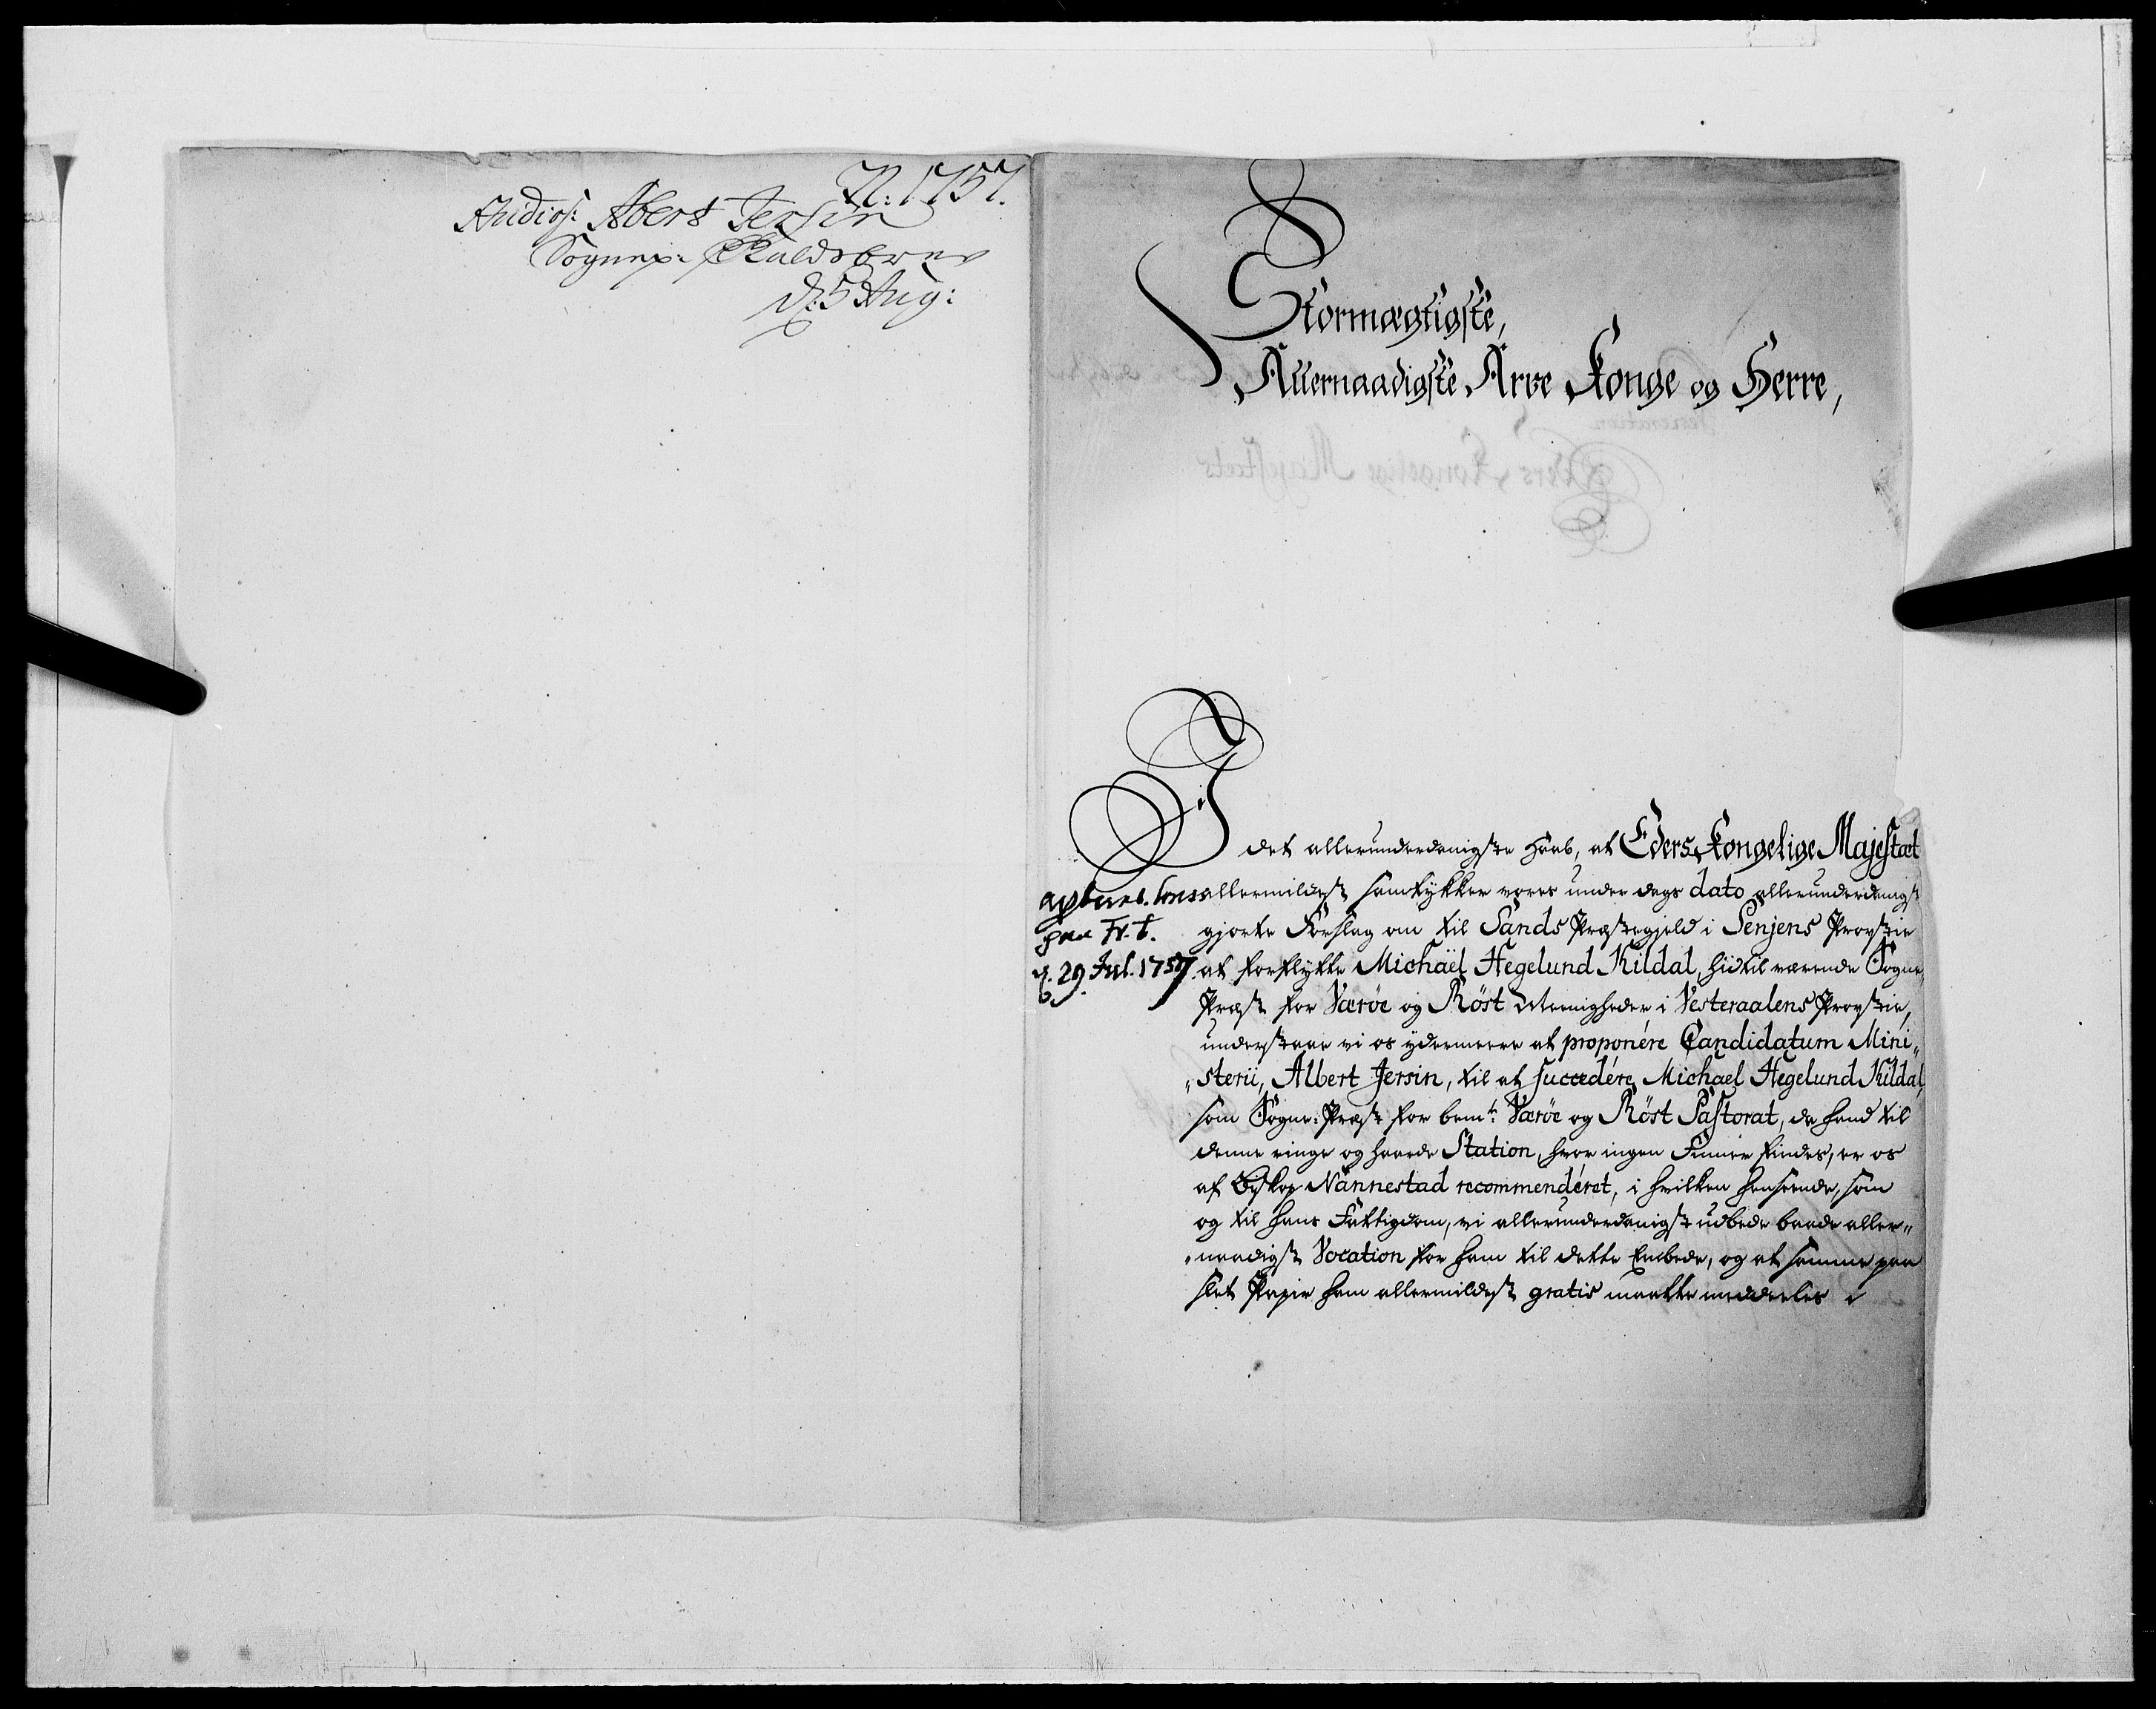 N: 1757.
Studios: Abert Jersin
Sognepr: Kaldsbrev
d: 5 Aug:
Stormægtigste,
Allernaadigste Arve Konge og Herre,
I det allerunderdanigste Haab, at Eders Kongelige Majestæt
allermildest samtykker vores under dags dato allerunderdanigst
gjorte Forslag om til Sands Præstegjeld i Senjens Provstie
at forflytte Michaël Hegelund Kildal, hidtil værende Sogne
Præst for Værøe og Röst Meenigheder i Vesteraalens Provstie,
understaae vi os ydermeere at proponére Candidatum Mini„
„sterii, Albert Jersin, til at succedére Michael Hegelund Kildal,
som Sogne-Præst for bemte Værøe og Röst Pastorat, da hand til
denne ringe og haarde Station, hvor ingen Finner findes, er os
af Biskop Nannestad recommendéret, i hvilken henseende, som
og til hans Fattigdom, vi allerunderdanigst udbede baade aller„
„naadigst Vocation for ham til dette Embede, og at samme paa
slet Papir ham allermildest gratis maatte meddeeles
paa Fr. b.
d. 29 Jul. 1757.